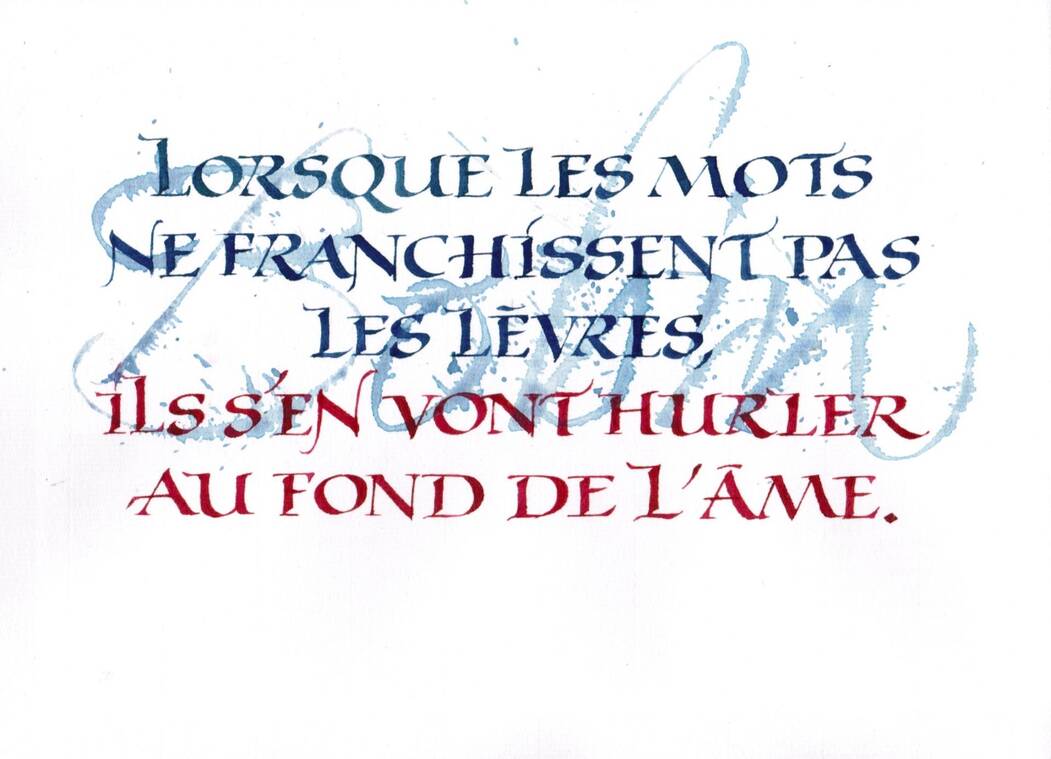 LORSQUE LES MOTS
NE FRANCHISSENT PAS
LES LÈVRES,
ILS S'EN VONT HURLER
AU FOND DE L'ÂME.